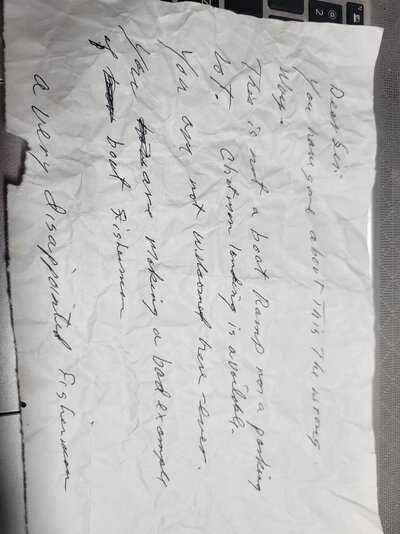 Dear Sir:
You have gone about This The wrong
Way.
This is not a boat Ramp nor a parking
lot. landing is available.
You are not welcomed here - ever.
You are making a bad example
of boat fisherman
a very disappointed fisherman
@
2